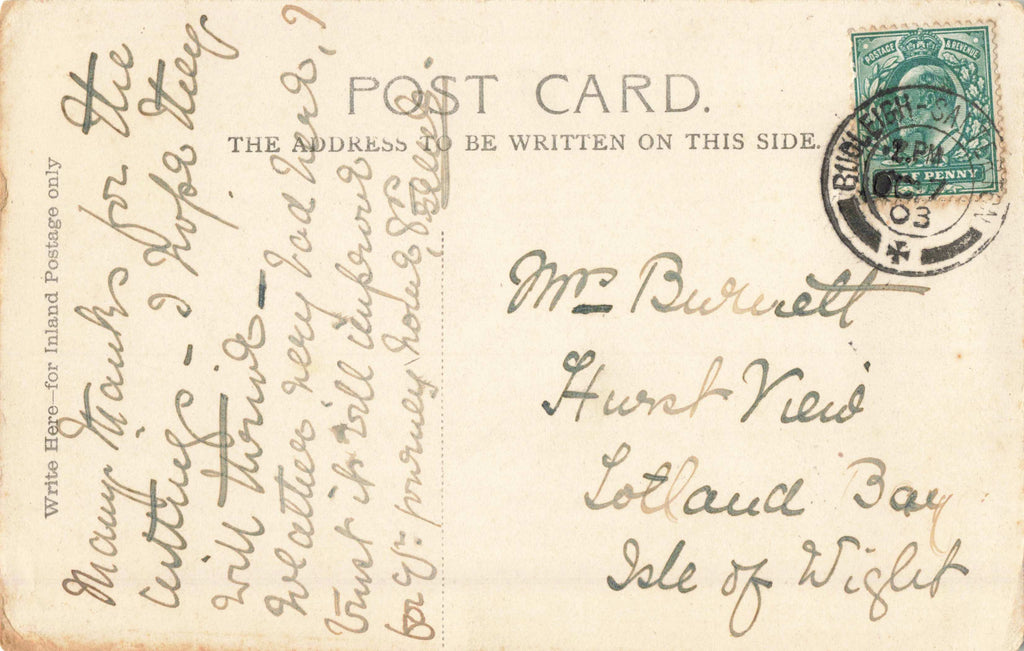 POST CARD.
THE ADDRESS TO BE WRITTEN ON THIS SIDE.
Write Here—for Inland Postage only
Many thanks for the
cuttings – I hope they
will thrive –
Weather very bad here, I
trust it will improve
for yr. journey home
Mrs Burnett
Hurst View
Totland Bay
Isle of Wight
POSTAGE & REVENUE
HALF PENNY
BUDLEIGH-SALTERTON
2.PM
03